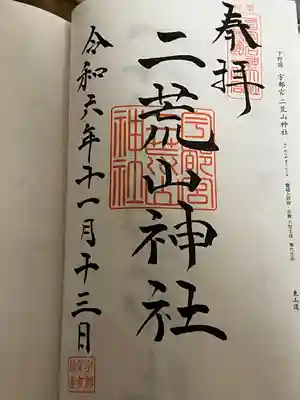 奉拝
下野國 宇都宮 二荒山神社
東山道
二荒山神社
宇都宮
神社
令和六年十一月十三日